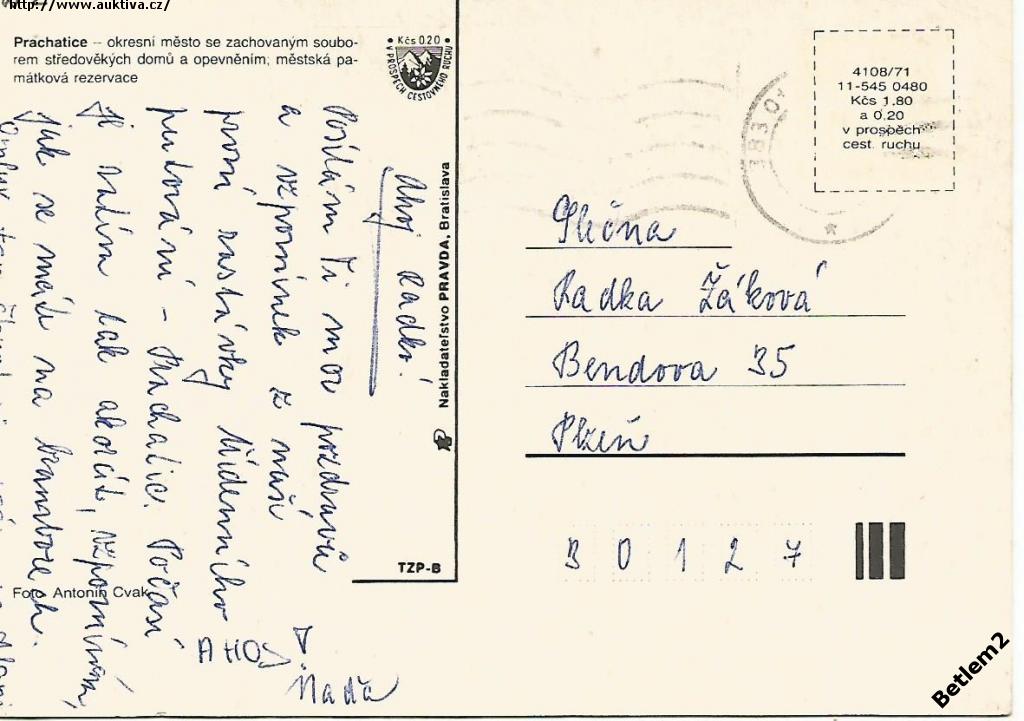 http://www.auktiva.cz/
Prachatice – okresní město se zachovaným soubo-
rem středověkých domů a opevněním; městská pa-
mátková rezervace
• Kčs 0.20 •
V PROSPĚCH CESTOVNÍHO RUCHU
Ahoj Radko!
Posílám Ti moc pozdravů
a vzpomínek z naší
první zastávky týdenního
putování – Prachatic. Počasí
je zatím tak akorát, vzpomínám
jak se máte na bramborech.
AHOJ!
Naďa
Foto Antonín Cvak
Nakladateľstvo PRAVDA, Bratislava
TZP-B
383 01
4108/71
11-545 0480
Kčs 1,80
a 0.20
v prospěch
cest. ruchu
Slečna
Radka Žáková
Bendova 35
Plzeň
3 0 1 2 7
Betlem2